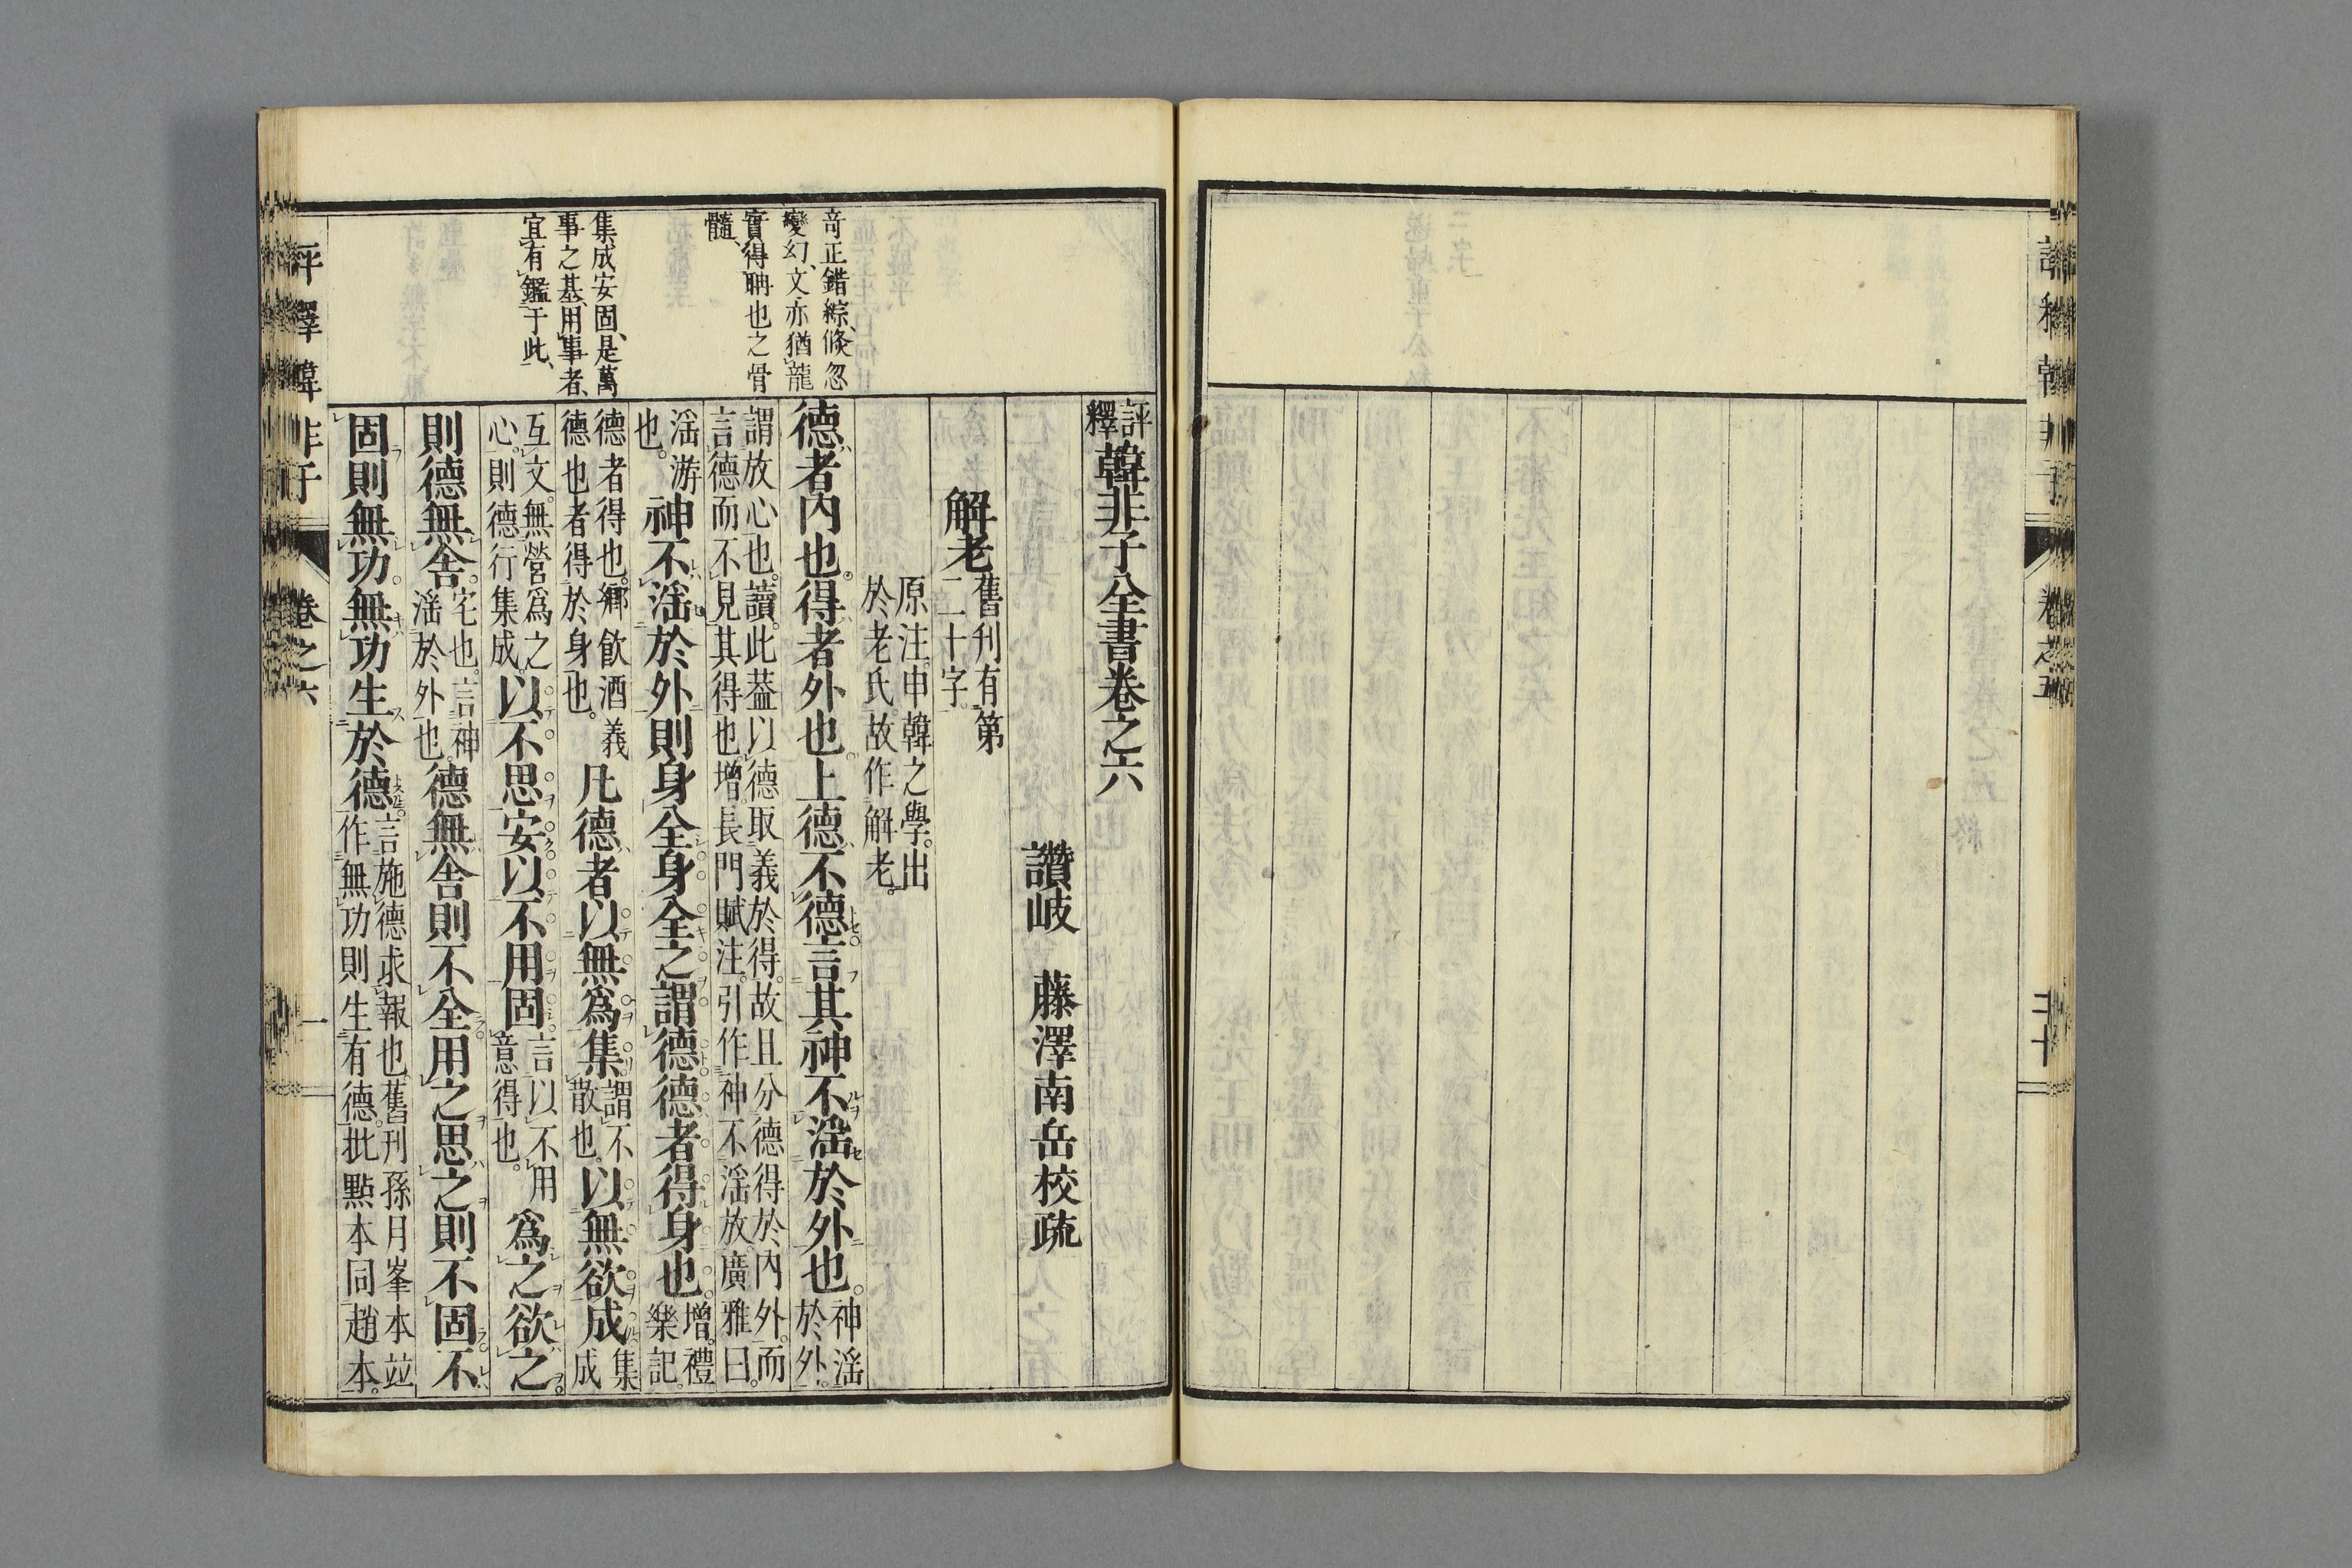 評釋韓非子全書卷之六
讚岐　藤澤南岳校疏
解老 舊刊有第二十字。
原注。申韓之學。出於老氏。故作解老。
德者內也。得者外也。上德不德。言其神不淫於外也。 神淫於外。
謂放心也。讀。此葢以德取義於得。故且分德得於內外。而言德而不見其得也。增。長門賦注。引作神不淫放。廣雅曰。
淫。游也。 神不淫於外則身全。身全之謂德。德者得身也。 增。禮樂記。
德者得也。鄉飲酒義德也者得於身也。 凡德者以無爲集。 謂不散也。 以無欲成。 集成
互文。無營爲之心。則德行集成。 以不思安。以不用固。 言以不用意得也。 爲之欲之。
則德無舍。 宅也。言神淫於外也。 德無舍則不全。用之思之則不固。不
固則無功。無功生於德。 言施德求報也。舊刊孫月峯本竝作無功則生有德。批點本同趙本。
奇正錯綜、倏忽
變幻、文亦猶龍
實得聃也之骨
髓、
集成安固、是萬
事之基、用事者、
宜有鑑于此、
評釋韓非子　卷之六　一
卷之五